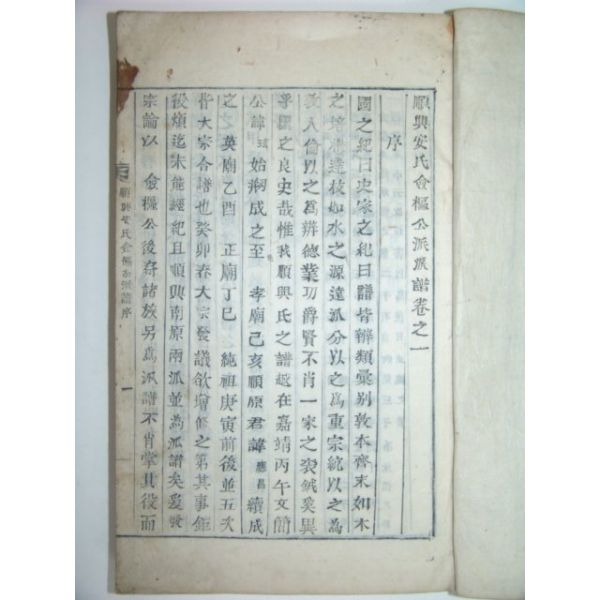 順興安氏僉樞公派派譜卷之一
序
國之紀曰史家之紀曰譜皆辨類彙別敦本齊末如木
之培 達枝如水之源達派分以之爲重宗統以之爲
敦人倫以之爲辨德業功爵賢不肖一家之袞鉞奚異
乎 之良史哉惟我順興氏之譜越在嘉靖丙午文簡
公諱玹始刱成之至 孝廟己亥順原君諱應昌續成
之 英廟乙酉 正廟丁巳 純祖庚寅前後並五次
皆大宗合譜也癸卯春大宗發議欲增修之第其事鉅
後煩迄未能經紀且順興南原兩派並爲派譜矣爰發
宗論以 僉樞公後裔諸族另爲派譜不肖掌其役而
順興安氏僉樞公派譜序 一